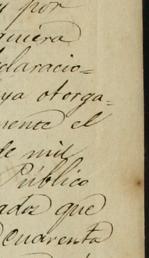 y por
quiera
claracio=
ya otorga-
mente el
de mil
Público
ados que
cuarenta